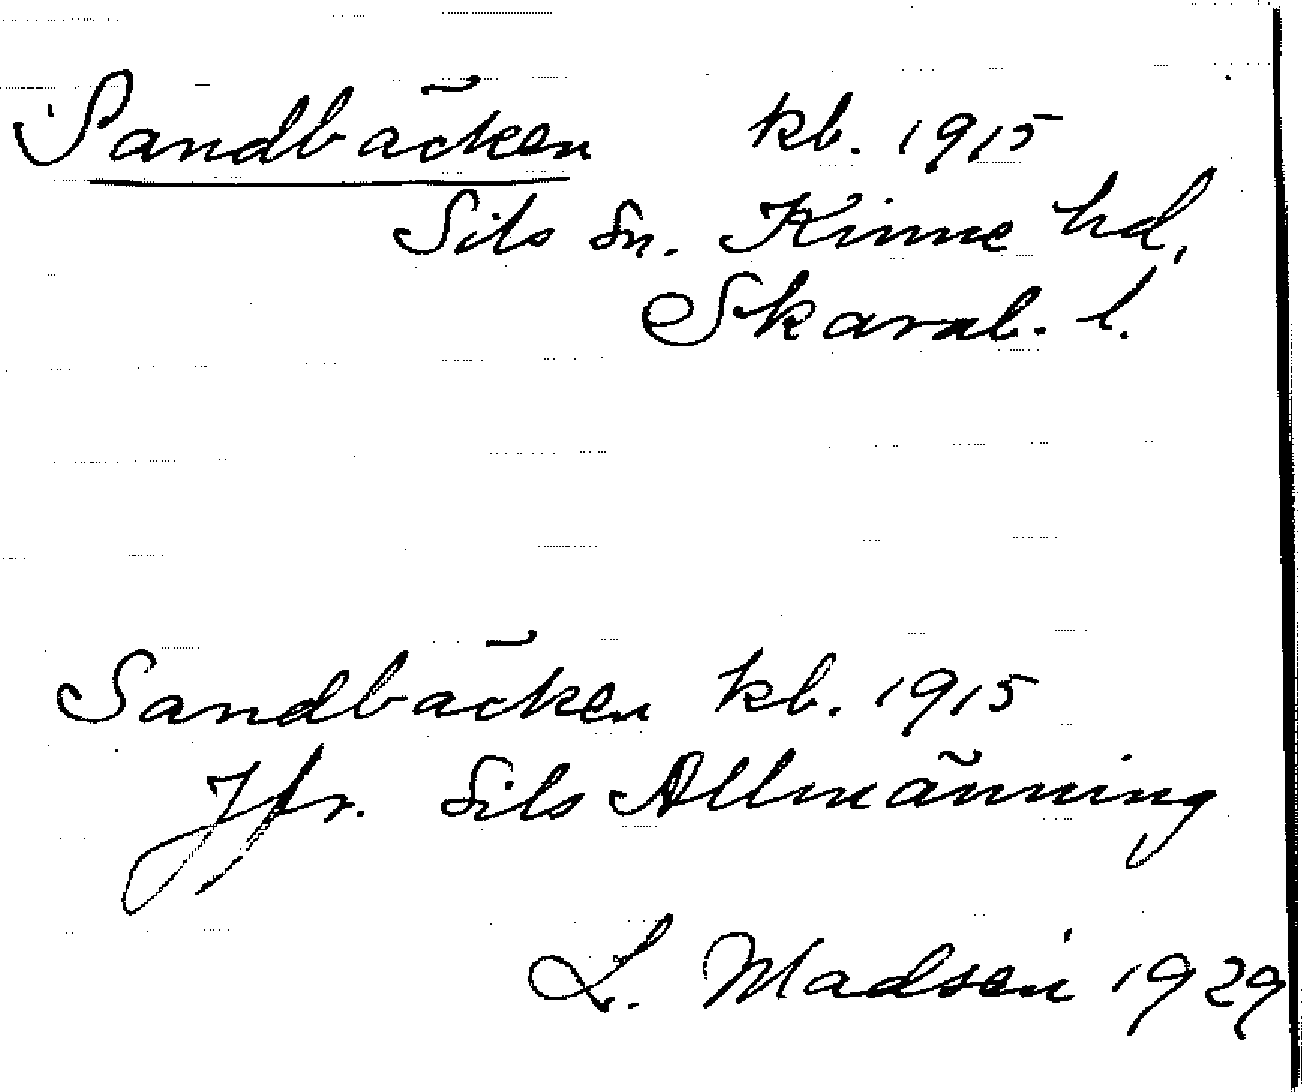 Sandbäcken kb. 1915
Sils sn. Kinne hd,
Skarab. l.
Sandbäcken kb. 1915
Jfr. Sils Allmänning
L. Madsén 1929